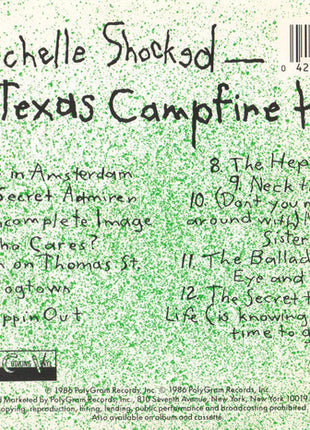 chelle Shocked
Texas Campfire
0 42
in Amsterdam
Secret Admirer
complete Image
ho Cares?
on Thomas St.
ogtown
ppin Out
8. The Hep
9. Neck t
10. (Don't you m
around with)
Sister
11. The Ballad
Eye and
12. The Secret t
Life (is knowing
time to
© 1986 PolyGram Records, Inc. ℗ 1986 PolyGram Records, Inc.
d Marketed By PolyGram Records, Inc., 810 Seventh Avenue, New York, New York 10019
copying, reproduction, hiring, lending, public performance and broadcasting prohibited.
Also available on album and cassette.